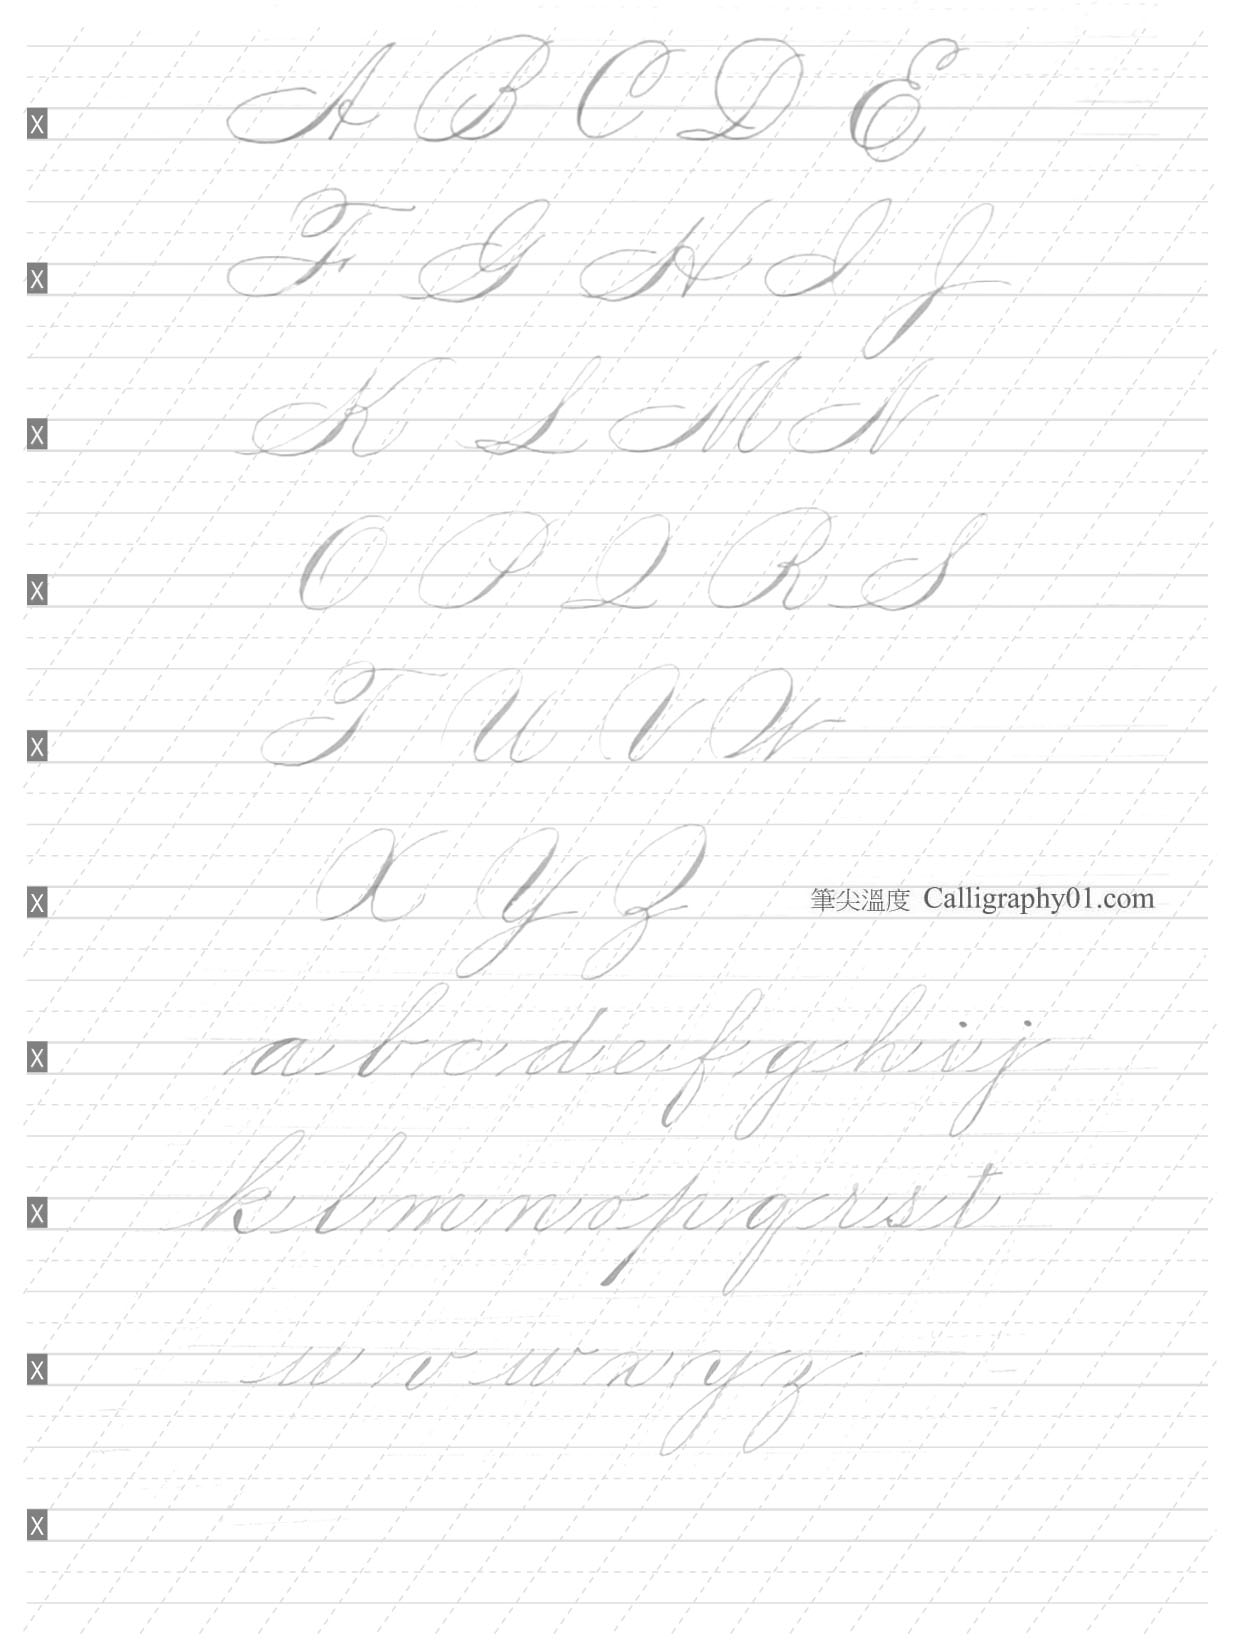 A B C D E
X
F G H I J
X
K L M N
X
O P Q R S
X
T U V W
X
X Y Z
X 筆尖溫度 Calligraphy01.com
a b c d e f g h i j
X
k l m n o p q r s t
X
u v w x y z
X
X